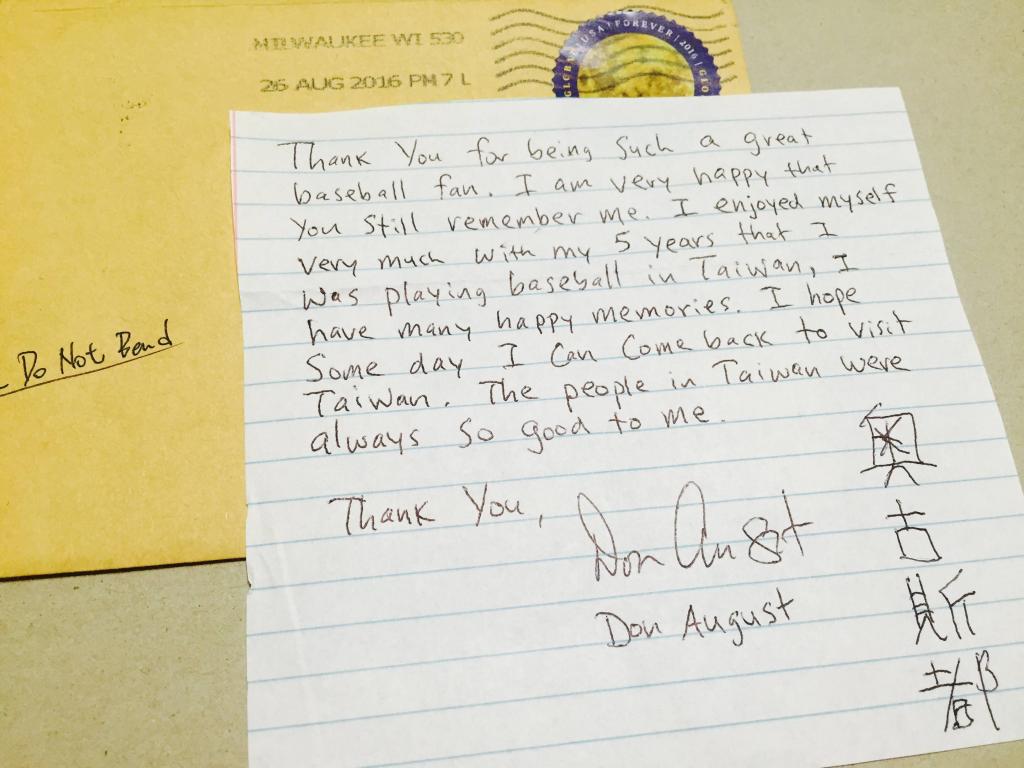 MILWAUKEE WI 530
26 AUG 2016 PM 7 L
USA | FOREVER | 2016 |
Do Not Bend
Thank You for being such a great
baseball fan. I am very happy that
you still remember me. I enjoyed myself
very much with my 5 years that I
was playing baseball in Taiwan, I
have many happy memories. I hope
Some day I can come back to visit
Taiwan. The people in Taiwan were
always so good to me.
Thank You,
Don August
Don August
奧
古
斯
都